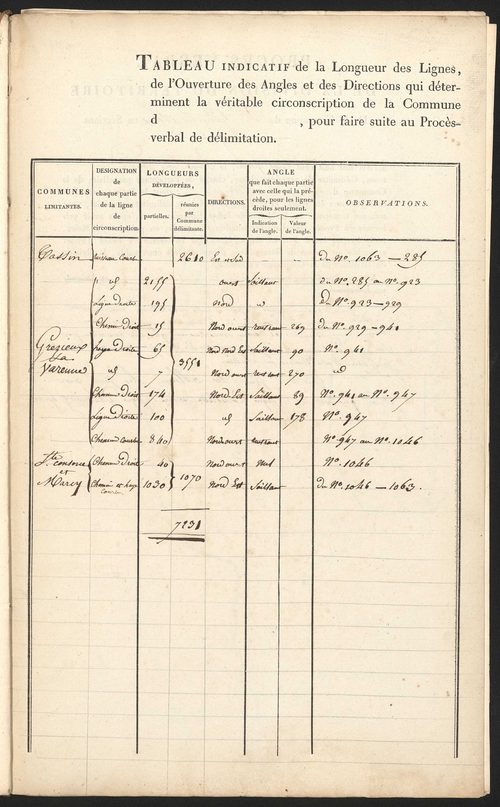 TABLEAU INDICATIF de la Longueur des Lignes,
de l'Ouverture des Angles et des Directions qui déter-
minent la véritable circonscription de la Commune
d , pour faire suite au Procès-
verbal de délimitation.
COMMUNES LIMITANTES. DESIGNATION de chaque partie de la ligne de circonscription. LONGUEURS DÉVELOPPÉES, partielles. réunies par Commune délimitante. DIRECTIONS. ANGLE que fait chaque partie avec celle qui la précède, pour les lignes droites seulement. Indication de l'angle. Valeur de l'angle. OBSERVATIONS.
courbe 2610 Est Sud - - du No. 1063 - 285
id 2155 ouest Saillant du No. 285 au No. 923
Ligne droite 195 Nord " du No. 923 - 929
Chemin Droit 15 Nord ouest rentrant 269 du No. 929 - 941
Grézieux la Varenne Droite 65 3551 Nord Nord Est Saillant 90 No. 941
id 7 Nord ouest rentrant 270 id
Chemin Droit 174 Nord Est Saillant 89 No. 941 au No. 947
Ligne Droite 100 id Saillant 178 No. 947
Chemin courbe 840 Nord ouest rentrant No. 947 au No. 1046
Ste consorce et Marcy Chemin Droit 40 1070 Nord ouest No. 1046
Chemin et haye courbe 1030 Nord Est Saillant du No. 1046 - 1063.
7231